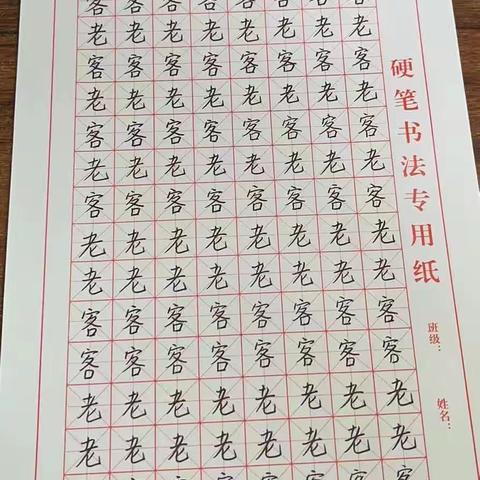 客客客客客客客客
老老老老老老老老
客客客客客客客客
老老老老老老老老
客客客客客客客客
老老老老老老老老
客客客客客客客客
老老老老老老老老
老老老老老老老老
客客客客客客客客
客客客客客客客客
老老老老老老老老
老老老老老老老老
客客客客客客客客
硬笔书法专用纸
班级：
姓名：